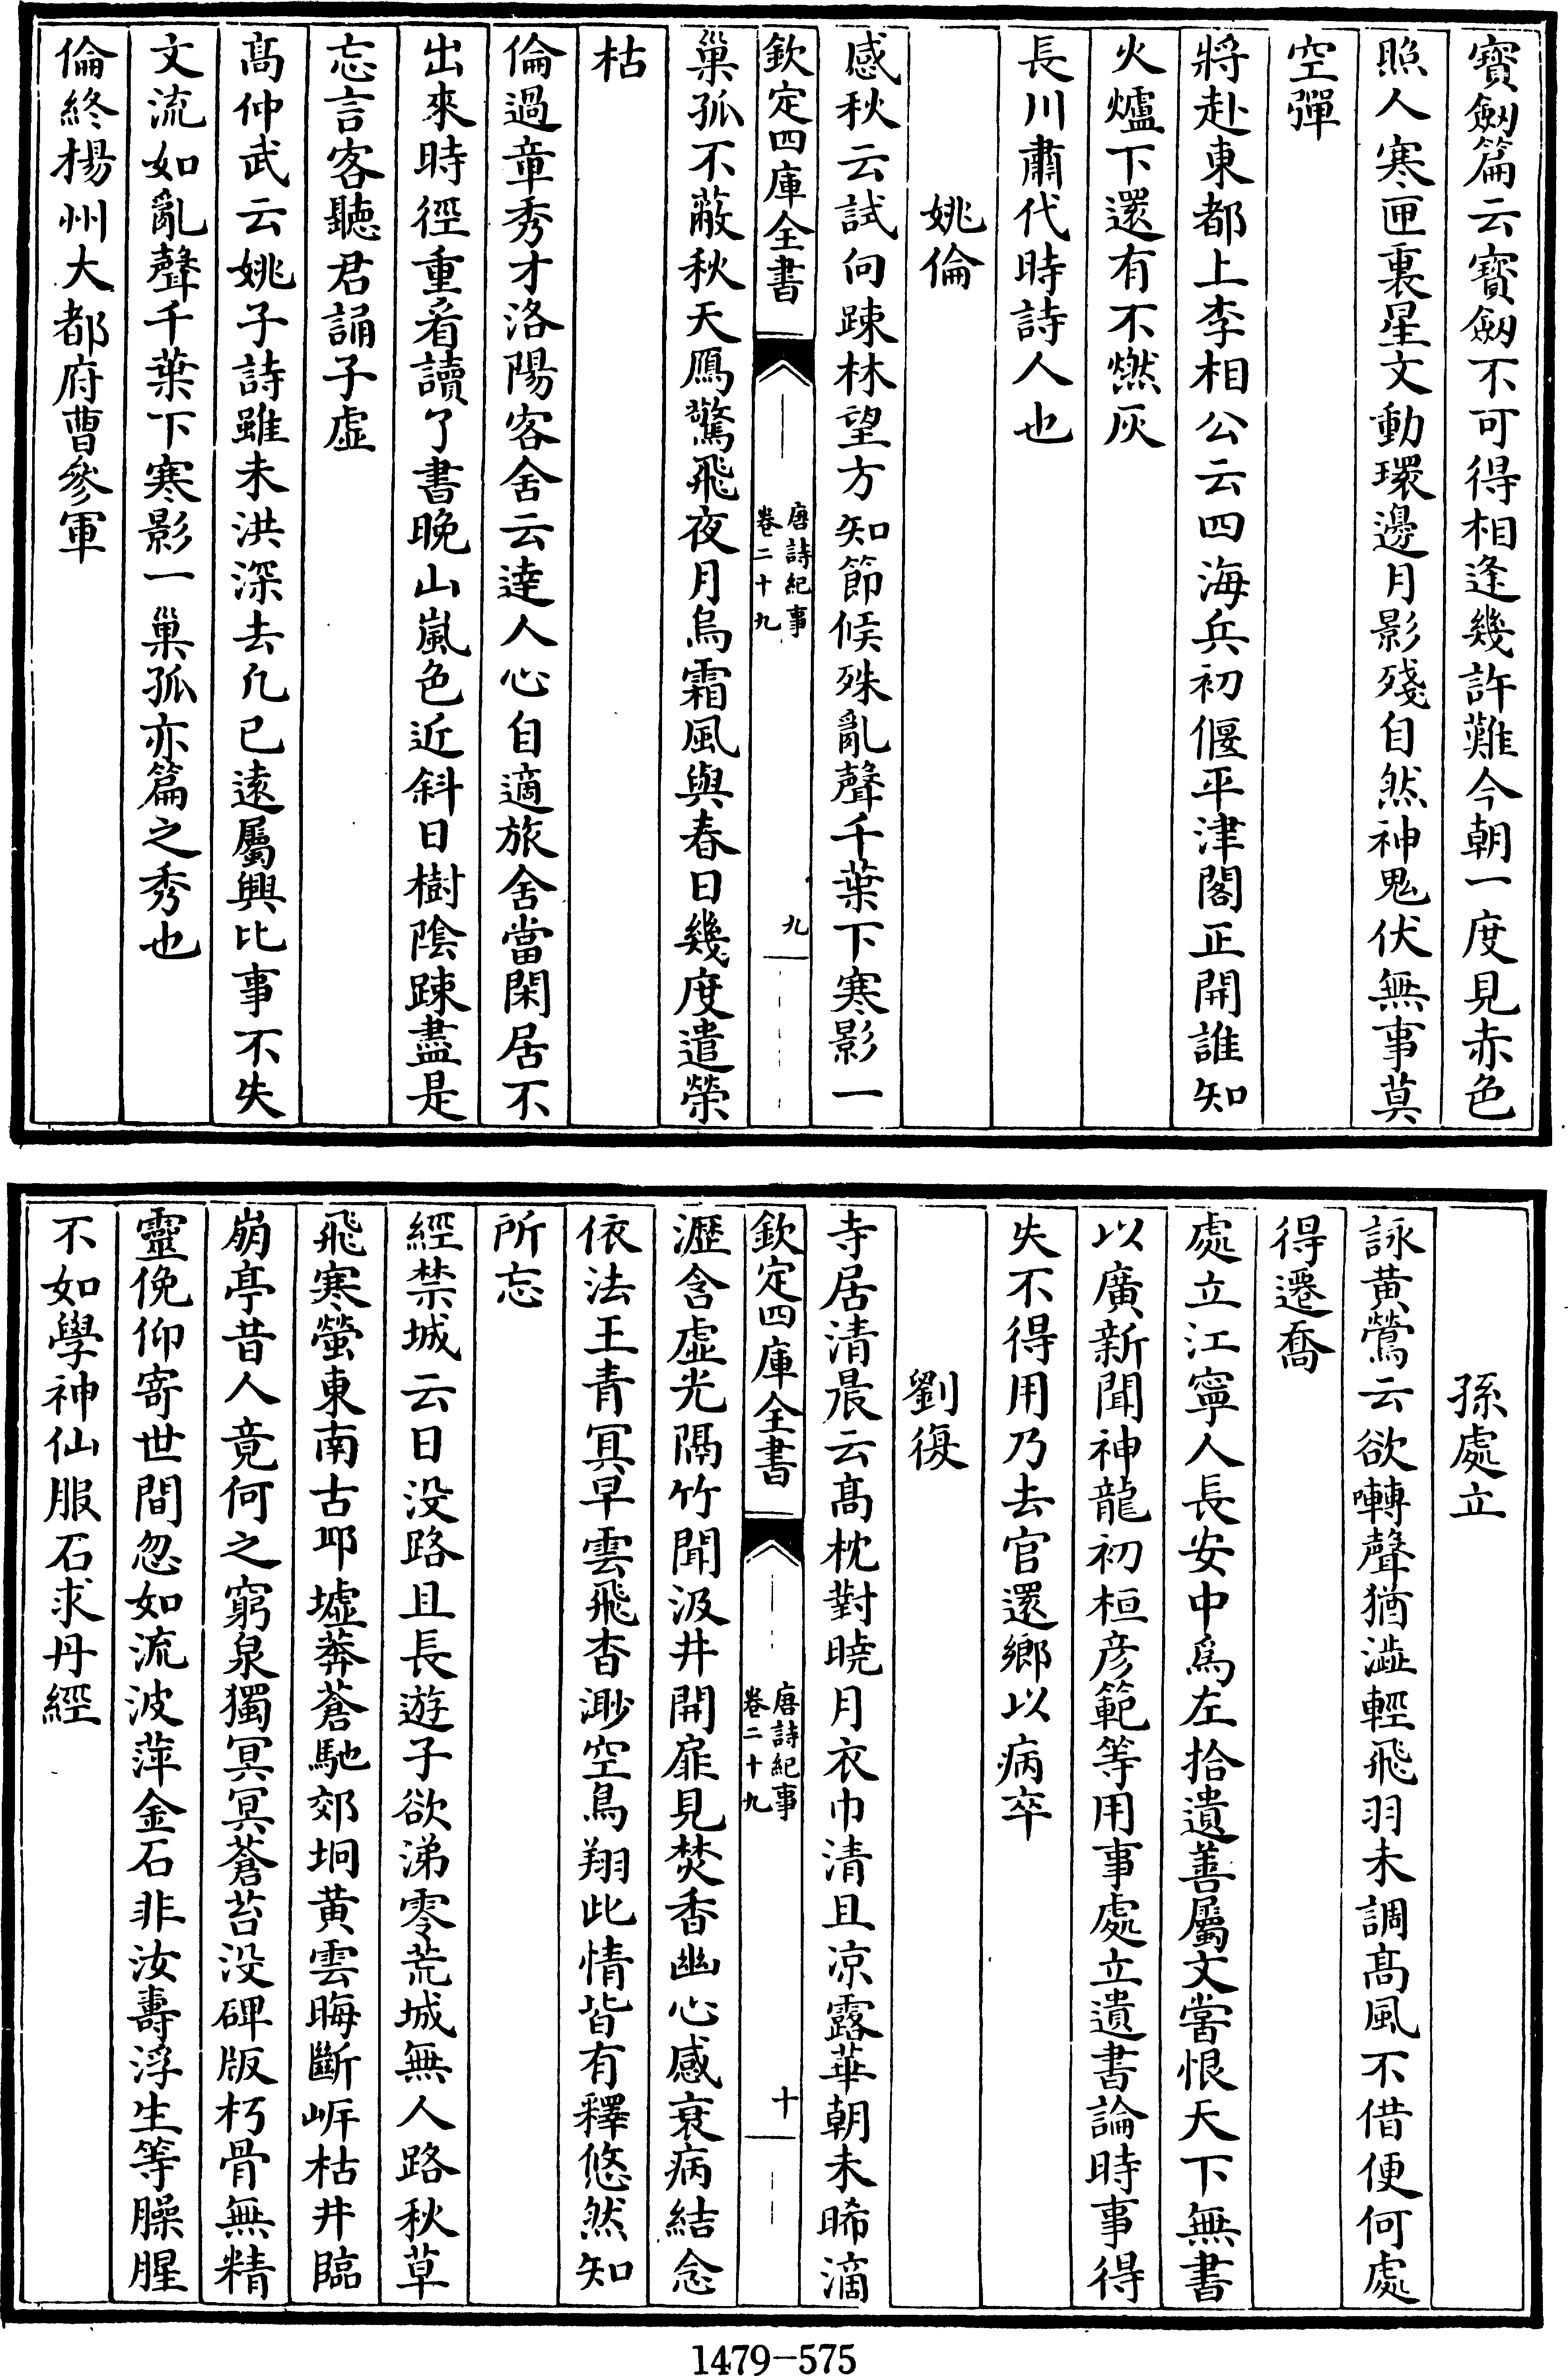 寳劔篇云寳劔不可得相逢幾許難今朝一度見赤色
照人寒匣裏星文動環邊月影殘自然神鬼伏無事莫
空彈
將赴東都上李相公云四海兵初偃平津閣正開誰知
火爐下還有不燃灰
長川肅代時詩人也
姚倫
感秋云試向踈林望方知節候殊亂聲千葉下寒影一
欽定四庫全書
唐詩紀事
卷二十九
九
巢孤不蔽秋天鴈驚飛夜月烏霜風與春日幾度遣榮
枯
倫過章秀才洛陽客舍云逹人心自適旅舍當閑居不
出來時徑重看讀了書晚山嵐色近斜日樹陰踈盡是
忘言客聽君誦子虛
髙仲武云姚子詩雖未洪深去凡已遠屬興比事不失
文流如亂聲千葉下寒影一巢孤亦篇之秀也
倫終揚州大都府曹參軍
孫處立
詠黄鶯云欲囀聲猶澁輕飛羽未調髙風不借便何處
得遷喬
處立江寧人長安中爲左拾遺善屬文嘗恨天下無書
以廣新聞神龍初桓彦範等用事處立遺書論時事得
失不得用乃去官還鄉以病卒
劉復
寺居清晨云髙枕對曉月衣巾清且凉露華朝未晞滴
欽定四庫全書
唐詩紀事
卷二十九
十
瀝含虛光隔竹聞汲井開扉見焚香幽心感衰病結念
依法王青冥早雲飛杳渺空鳥翔此情皆有釋悠然知
所忘
經禁城云日没路且長遊子欲涕零荒城無人路秋草
飛寒螢東南古邱墟莽蒼馳郊坰黄雲晦斷岸枯井臨
崩亭昔人竟何之窮泉獨冥冥蒼苔没碑版朽骨無精
靈俛仰寄世間忽如流波萍金石非汝壽浮生等臊腥
不如學神仙服石求丹經
1479-575